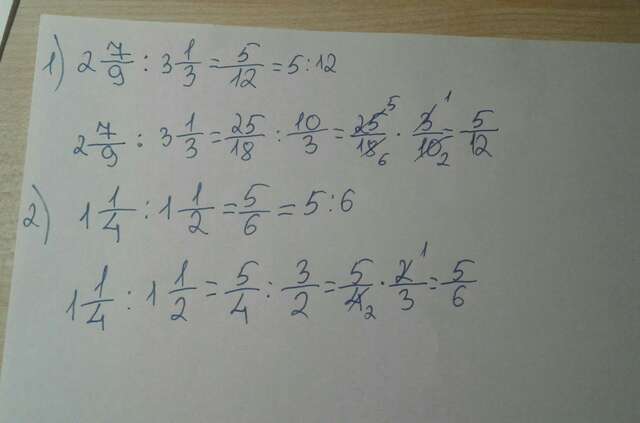 1) 2 7/9 : 3 1/3 = 5/12 = 5:12
2 7/9 : 3 1/3 = 25/18 : 10/3 = 25/18 5 6 · 3/10 1 2 = 5/12
2) 1 1/4 : 1 1/2 = 5/6 = 5:6
1 1/4 : 1 1/2 = 5/4 : 3/2 = 5/4 2 · 2/3 1 = 5/6